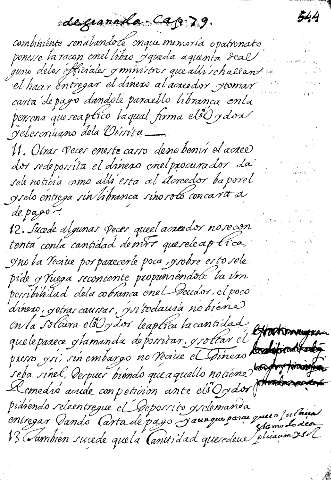 de granada - Cap. 79. 544
combiniente señalandole en que memoria o patronato
ponese la racon en el libro, y queda a quenta de al
guno de los officiales y ministros que alli se hallan
el hacer entregar el dinero al acreedor, y tomar
carta de pago dandole para ello librança en la
persona que se aplico la qual firma el Oydor
y el escrivano de la Visita
11. Otras veces en este casso de no benir el acree
dor se depossita el dinero en el procurador da
sele noticia como alli esta al Acreedor ba por el
y se lo entrega sin librança sino solo con carta
de pago.
12. Sucede algunas veces que el acreedor no se con
tenta con la cantidad de mrs que se le aplica
y no la recive por parecerle poca y sobre esto se le
pide y ruega se contente proponiendole la im
possibilidad de la cobrança en el Deudor, el poco
dinero, y otras causas, y si todavia no biene
en la soltura el Oydor le aplica la cantidad
que le parece y la manda depositar, y soltar el
presso y si sin embargo no recive el Dinero
se ba sin el. Despues biendo que aquello no tiene
Remedio acude con peticion ante el Oydor
pidiendo se le entregue el Deposito y se le manda
entregar dando Carta de pago
13. Tambien sucede que la Cantidad que se